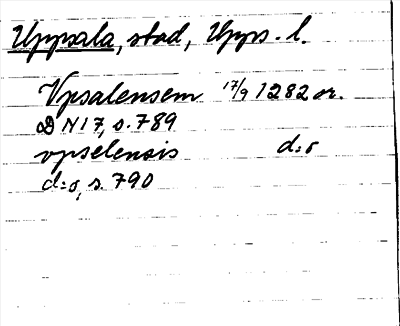 Uppsala, stad, Upps. l.
Vpsalensem 17/9 1282 or.
DN 17, s. 789
vpselensis d:o
d:o, s. 790